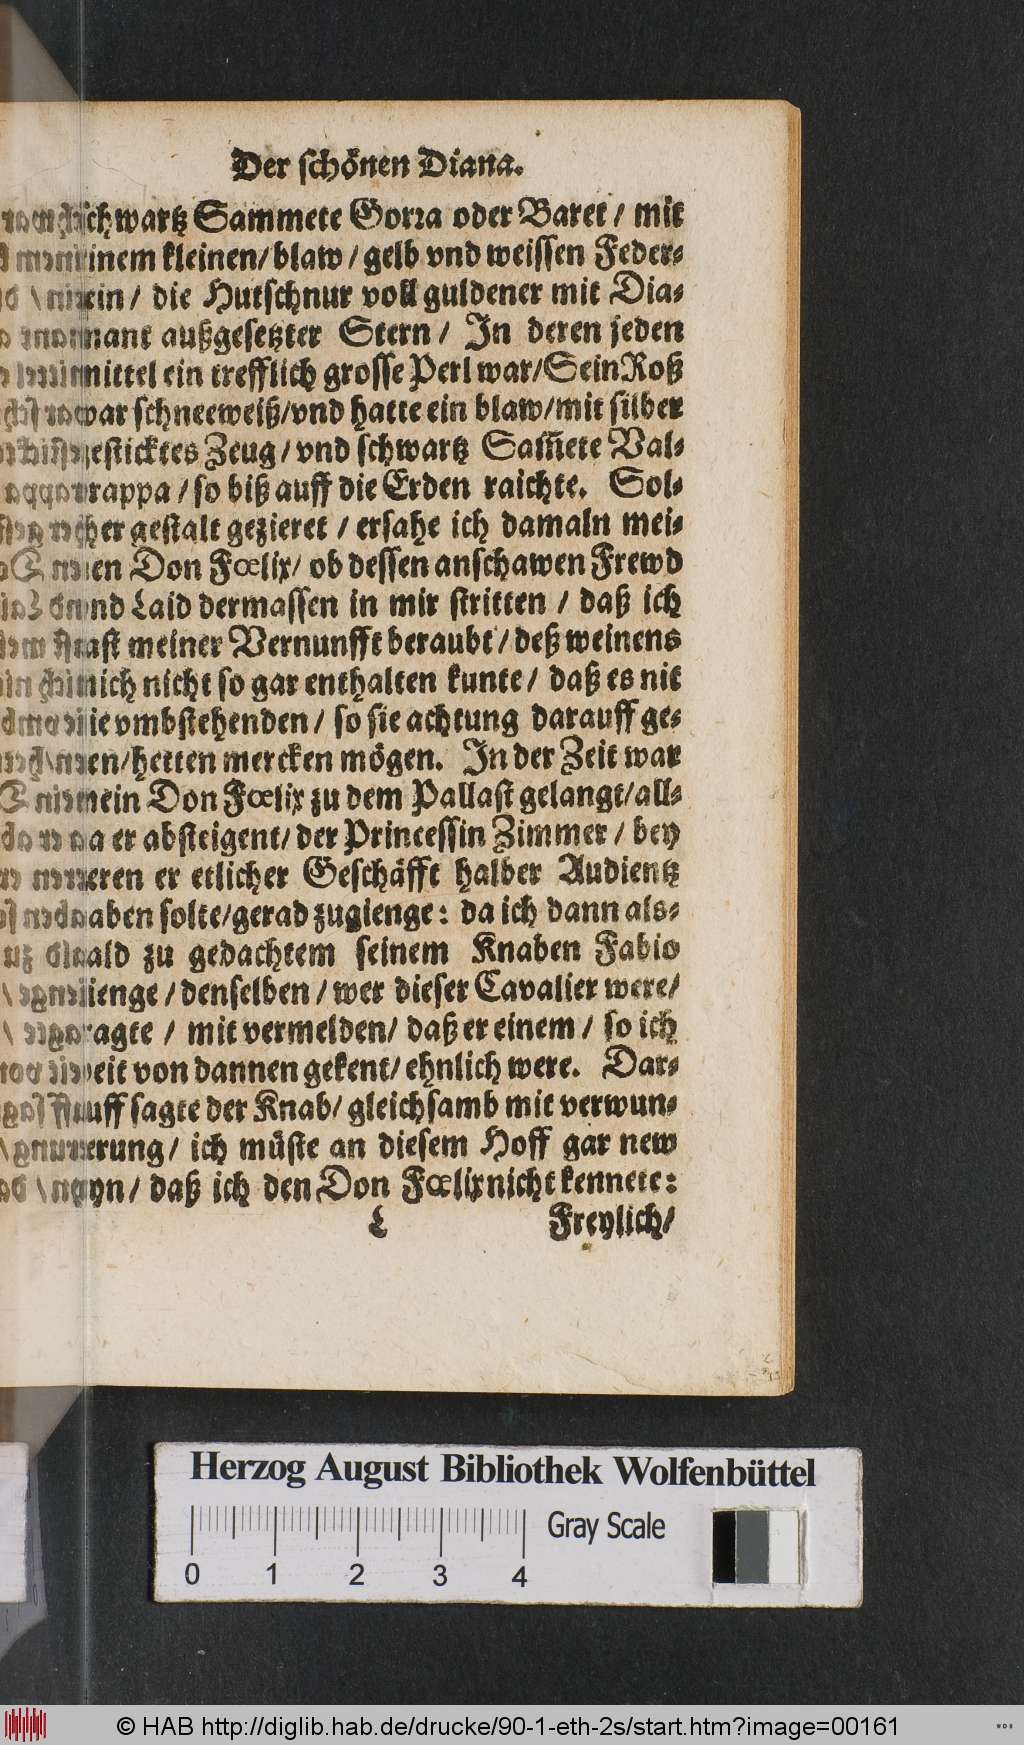 Der schönen Diana.
schwartz Sammete Gorra oder Baret / mit
einem kleinen / blaw / gelb vnd weissen Feder-
lein / die Hutschnur voll guldener mit Dia-
mant außgesetzter Stern / In deren jeden
mittel ein trefflich grosse Perl war / Sein Roß
war schneeweiß / vnd hatte ein blaw / mit silber
gesticktes Zeug / vnd schwartz Sam̅ete Val-
trappa / so biß auff die Erden raichte. Sol-
cher gestalt gezieret / ersahe ich damaln mei-
nen Don Fœlix / ob dessen anschawen Frewd
vnd Laid dermassen in mir stritten / daß ich
fast meiner Vernunfft beraubt / deß weinens
mich nicht so gar enthalten kunte / daß es nit
die vmbstehenden / so sie achtung darauff ge-
ben / hetten mercken mögen. In der Zeit war
mein Don Fœlix zu dem Pallast gelangt / all-
da er absteigent / der Princessin Zimmer / bey
deren er etlicher Geschäfft halber Audientz
haben solte / gerad zugienge: da ich dann als-
bald zu gedachtem seinem Knaben Fabio
gienge / denselben / wer dieser Cavalier were /
fragte / mit vermelden / daß er einem / so ich
weit von dannen gekent / ehnlich were. Dar-
auff sagte der Knab / gleichsamb mit verwun-
derung / ich müste an diesem Hoff gar new
seyn / daß ich den Don Fœlix nicht kennete:
L Freylich /
Herzog August Bibliothek Wolfenbüttel
Gray Scale
0 1 2 3 4
© HAB http://diglib.hab.de/drucke/90-1-eth-2s/start.htm?image=00161